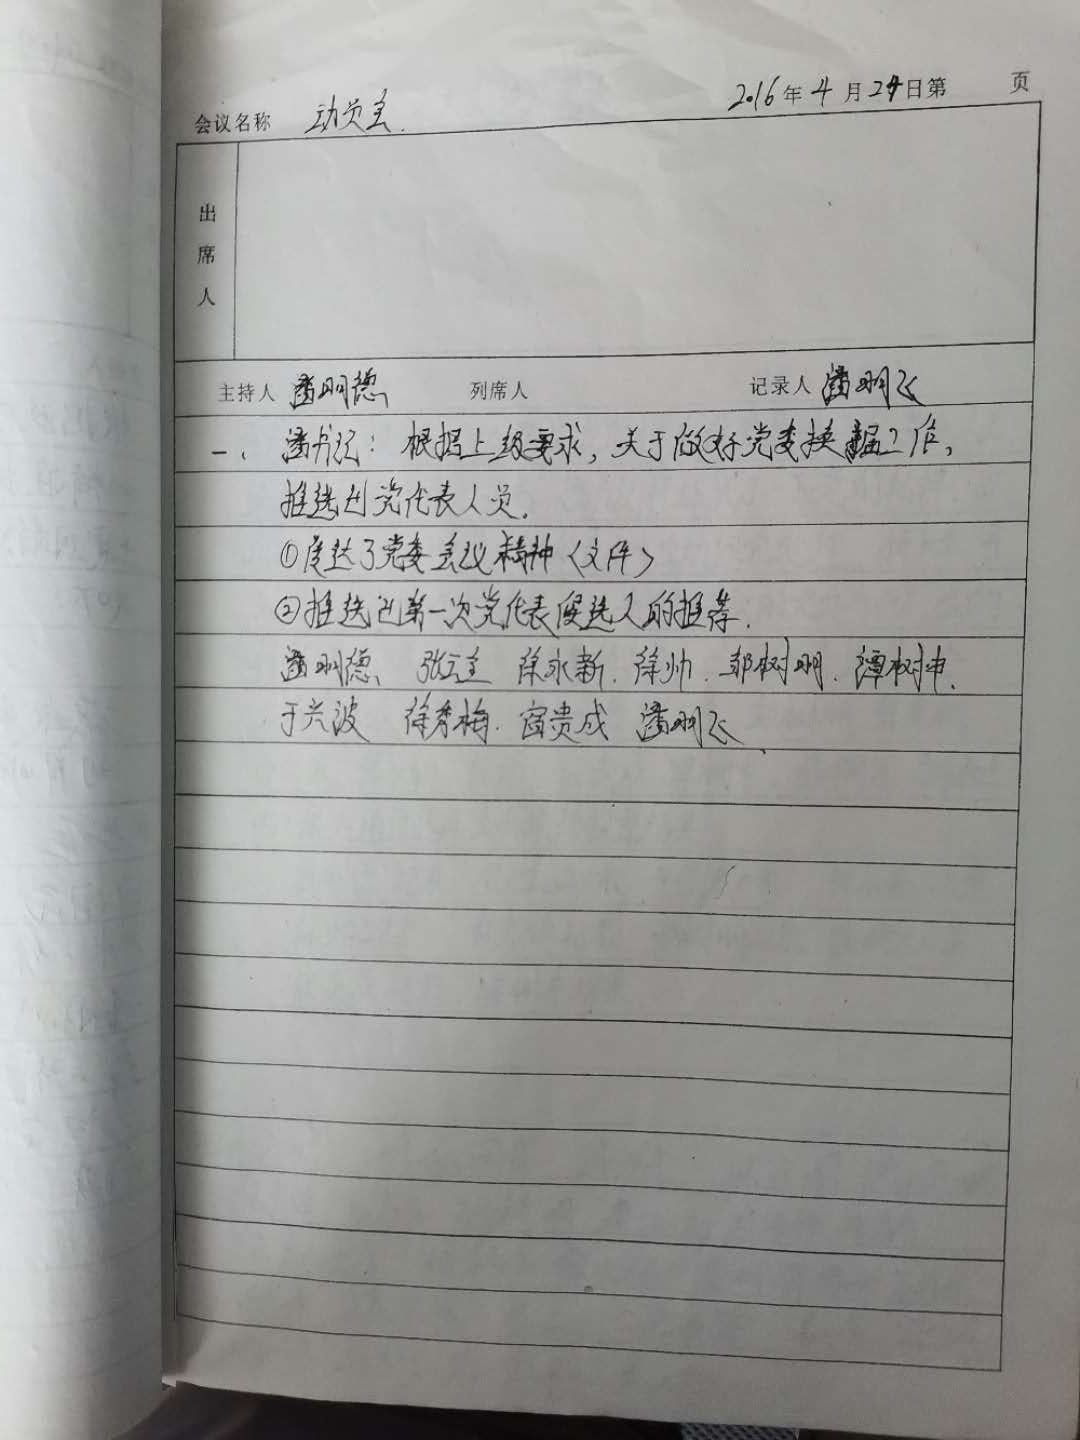 会议名称 动员会. 2016年4月24日第 页
出席人
主持人 潘明德 列席人 记录人 潘明飞
一、潘书记：根据上级要求，关于做好党委换届工作，
推选出党代表人员.
①传达了党委会议精神〈文件〉
②推选出第一次党代表候选人的推荐.
潘明德、 徐永新. 徐帅. 邹树明. 谭树坤.
于兴波 徐秀梅. 宿贵成 潘明飞、